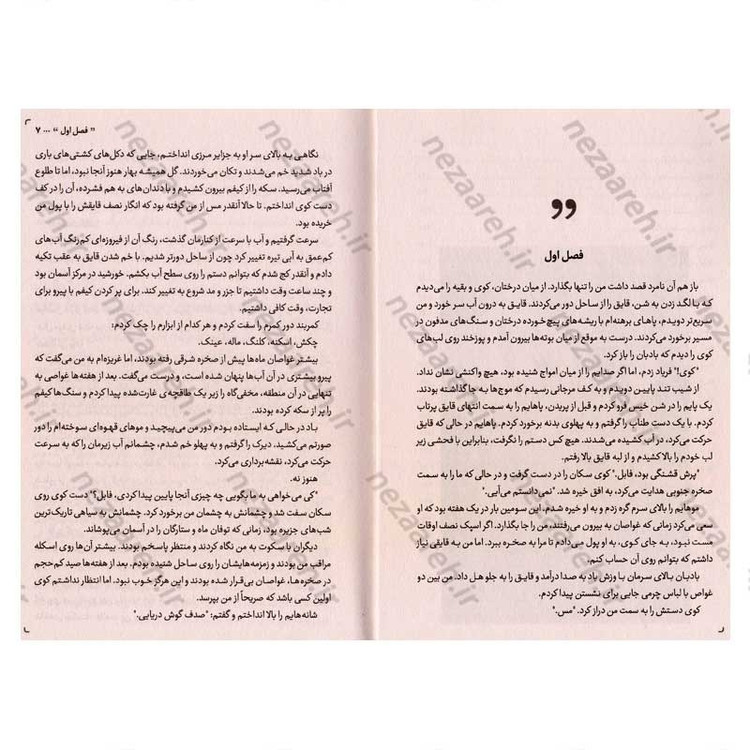 فصل اول
باز هم آن نامرد قصد داشت من را تنها بگذارد. از میان درختان، کوی و بقیه را می‌دیدم
که با لگد زدن به شن، قایق را از ساحل دور می‌کردند. قایق به درون آب سر خورد و من
سریع‌تر دویدم، پاهای برهنه‌ام با ریشه‌های پیچ‌خورده درختان و سنگ‌های مدفون در
مسیر برخورد می‌کردند. درست به موقع از میان بوته‌ها بیرون آمدم و پوزخند روی لب‌های
کوی را دیدم که بادبان را باز کرد.
"کوی!" فریاد زدم، اما اگر صدایم را از میان امواج شنیده بود، هیچ واکنشی نشان نداد.
از شیب تند پایین دویدم و به کف مرجانی رسیدم که موج‌ها به جا گذاشته بودند.
یک پایم را در شن خیس فرو کردم و قبل از پریدن، پاهایم را به سمت انتهای قایق پرتاب
کردم. با یک دست طناب را گرفتم و به پهلوی بدنه برخورد کردم. پاهایم در حالی که قایق
حرکت می‌کرد، در آب کشیده می‌شدند. هیچ کس دستم را نگرفت، بنابراین با فحشی زیر
لب خودم را بالا کشیدم و از لبه قایق بالا رفتم.
"پرش قشنگی بود، فابل." کوی سکان را در دست گرفت و در حالی که ما را به سمت
صخره جنوبی هدایت می‌کرد، به افق خیره شد. "نمی‌دانستم می‌آیی."
موهایم را بالای سرم گره زدم و به او خیره شدم، این سومین بار در یک هفته بود که او
سعی می‌کرد زمانی که غواصان به بیرون می‌رفتند، من را جا بگذارد. اگر اسپک نصف اوقات
مست نبود، به جای کوی، به او پول می‌دادم تا مرا به صخره ببرد. اما من به قایقی نیاز
داشتم که بتوانم روی آن حساب کنم.
بادبان بالای سرمان با وزش باد به صدا درآمد و قایق را به جلو هل داد. من بین دو
غواص با لباس چرمی جایی برای نشستن پیدا کردم.
کوی دستش را به سمت من دراز کرد. "مس."
" فصل اول " ... ۷
نگاهی به بالای سر او به جزایر مرزی انداختم، جایی که دکل‌های کشتی‌های باری
در باد شدید خم می‌شدند و تکان می‌خوردند. گل همیشه بهار هنوز آنجا نبود، اما تا طلوع
آفتاب می‌رسید. سکه را از کیفم بیرون کشیدم و با دندان‌های به هم فشرده، آن را در کف
دست کوی انداختم. تا حالا آنقدر مس از من گرفته بود که انگار نصف قایقش را با پول من
خریده بود.
سرعت گرفتیم و آب با سرعت از کنارمان گذشت، رنگ آن از فیروزه‌ای کم‌رنگ آب‌های
کم‌عمق به آبی تیره تغییر کرد چون از ساحل دورتر شدیم. با خم شدن قایق به عقب تکیه
دادم و آنقدر کج شدم که بتوانم دستم را روی سطح آب بکشم. خورشید در مرکز آسمان بود
و چند ساعت وقت داشتیم تا جزر و مد شروع به تغییر کند. برای پر کردن کیفم با پیرو برای
تجارت، وقت کافی داشتیم.
کمربند دور کمرم را سفت کردم و هر کدام از ابزارم را چک کردم:
چکش، اسکنه، کلنگ، ماله، عینک.
بیشتر غواصان ماه‌ها پیش از صخره شرقی رفته بودند، اما غریزه‌ام به من می‌گفت که
پیرو بیشتری در آن آب‌ها پنهان شده است، و درست می‌گفت. بعد از هفته‌ها غواصی به
تنهایی در آن منطقه، مخفی‌گاه را زیر یک طاقچه‌ی غارت‌شده پیدا کردم و سنگ‌ها کیفم
را پر از سکه کرده بودند.
باد در حالی که ایستاده بودم دور من می‌پیچید و موهای قهوه‌ای سوخته‌ام را دور
صورتم می‌کشید. دیرک را گرفتم و به پهلو خم شدم، چشمانم آب زیرمان را که به سرعت
حرکت می‌کرد، نقشه‌برداری می‌کرد.
هنوز نه.
"کی می‌خواهی به ما بگویی چه چیزی آنجا پایین پیدا کردی، فابل؟" دست کوی روی
سکان سفت شد و چشمانش به چشمان من برخورد کرد. چشمانش به سیاهی تاریک‌ترین
شب‌های جزیره بود، زمانی که توفان ماه و ستارگان را در آسمان می‌پوشاند.
دیگران با سکوت به من نگاه کردند و منتظر پاسخم بودند. بیشتر آن‌ها روی اسکله
مراقب من بودند و زمزمه‌هایشان را روی ساحل شنیده بودم. بعد از هفته‌ها صید کم‌حجم
در صخره‌ها، غواصان بی‌قرار شده بودند و این هرگز خوب نبود. اما انتظار نداشتم کوی
اولین کسی باشد که صریحاً از من بپرسد.
شانه‌هایم را بالا انداختم و گفتم: "صدف گوش دریایی."
nezaareh.ir